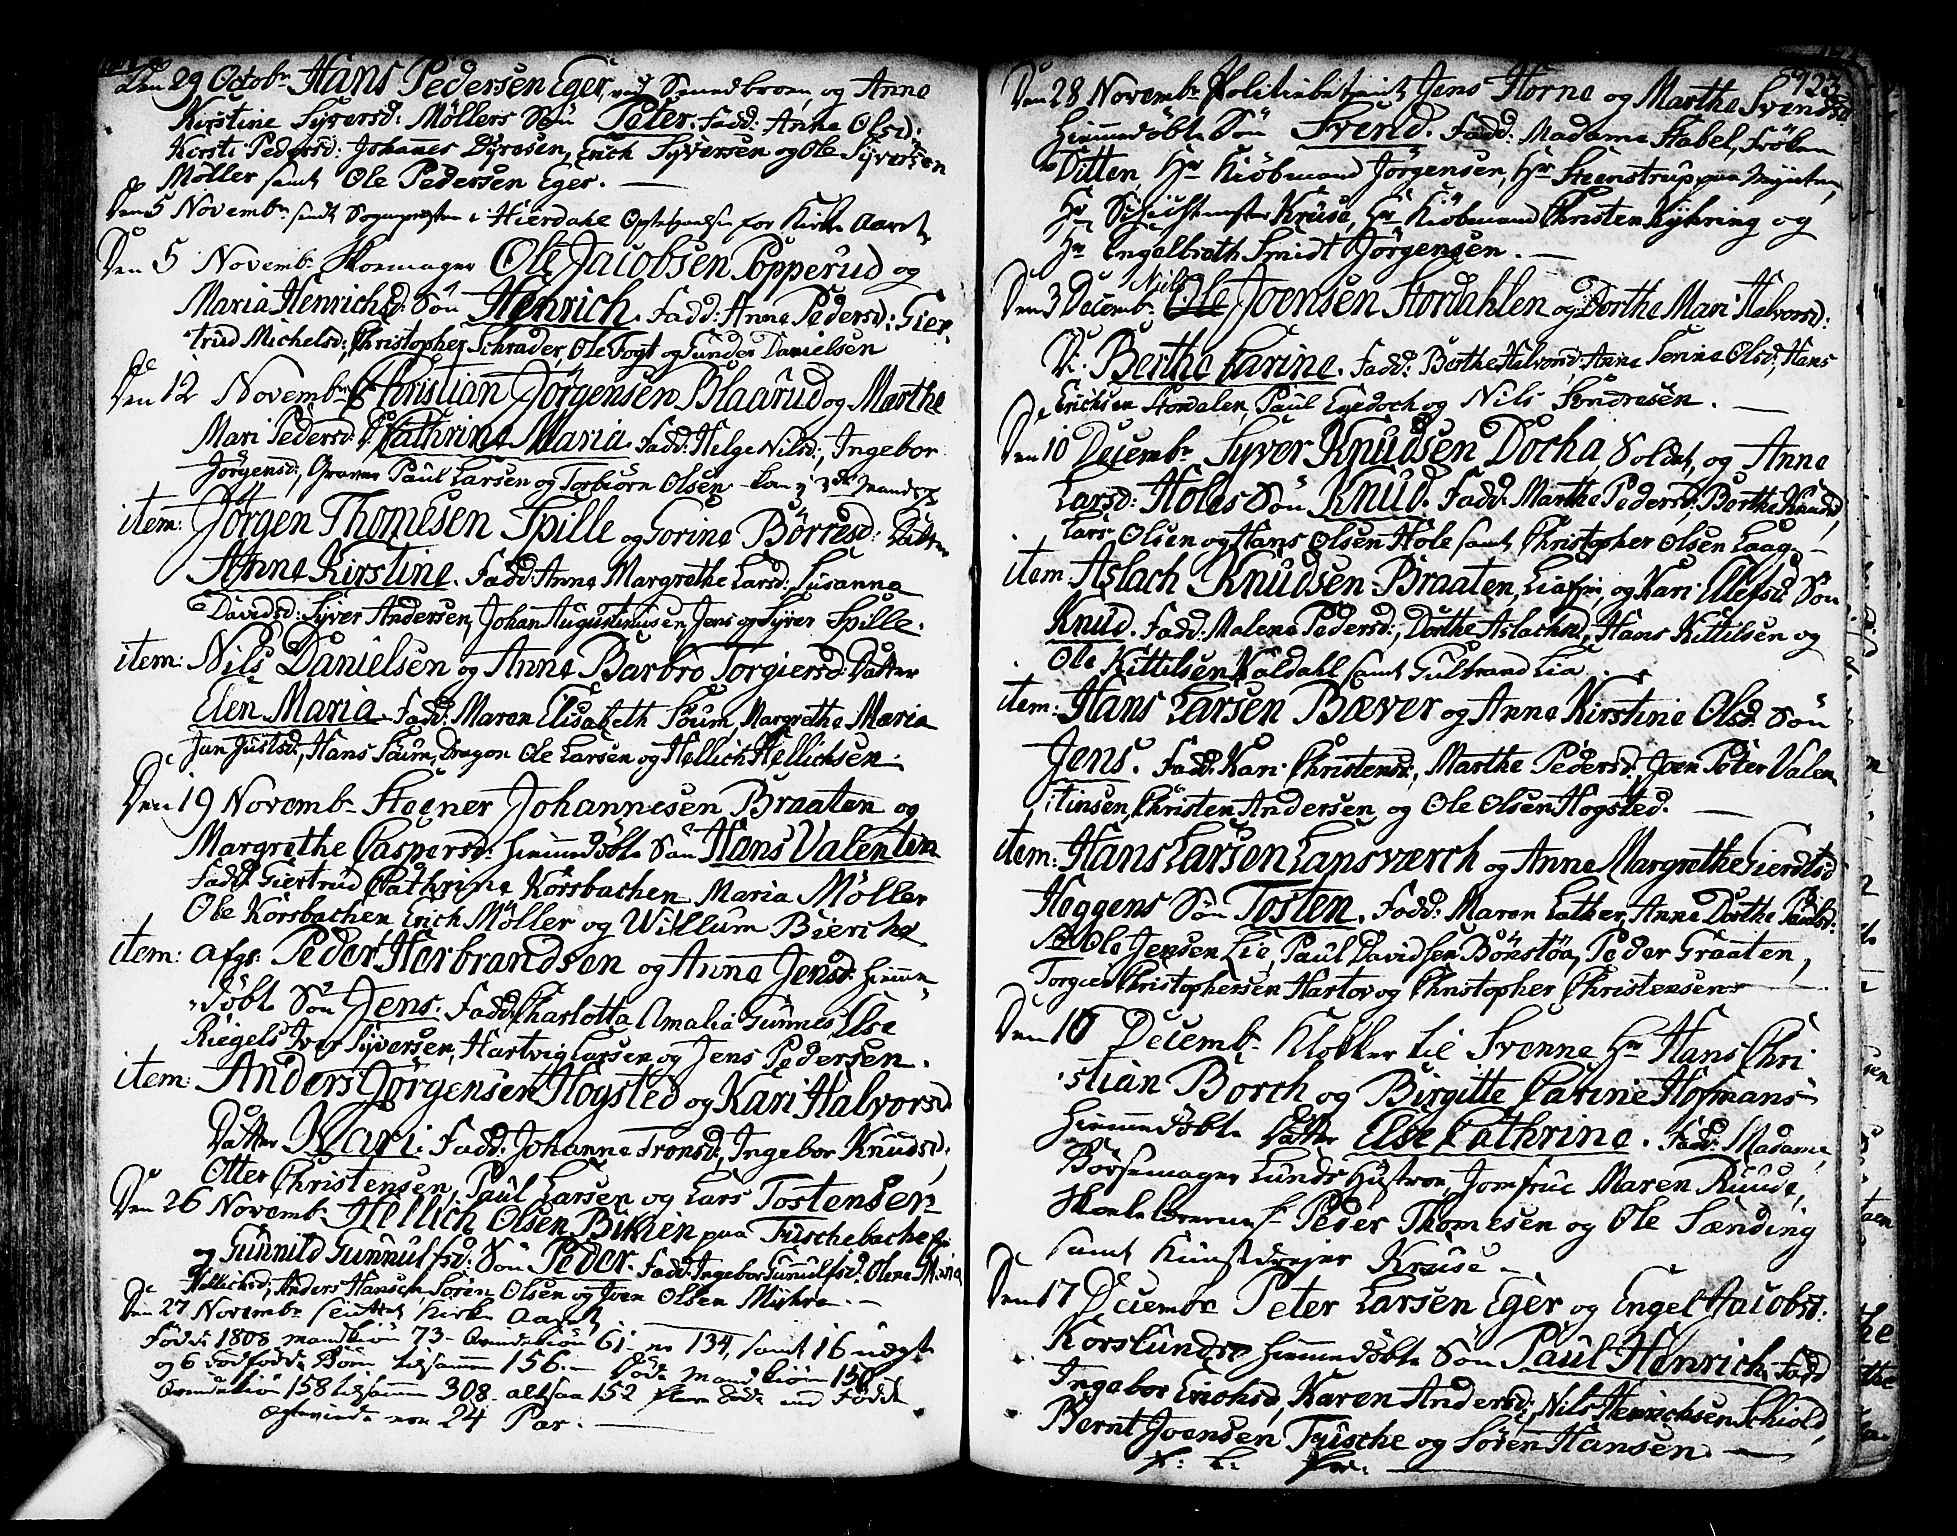 Den 29 Octobr Hans Pedersen Eger, ved Smedbroen, og Anne
Kirstine Syversd: Möllers Sön Peter. Fadd: Anne Olsd:
Kirsti Pedersd: Johanes Dyresen, Erich Syversen og Ole Syversen
Möller samt Ole Pedersen Eger.
Den 5 Novembr samt Sognepresten i Hierdahl for Kirke Aaret
Den 5 Novembr Skomager Ole Jacobsen Popperud og
Maria Henrichsd: Sön Henrich. Fadd: Anne Pedersd: Gier
trud Michelsd:, Christopher Schrader, Ole Fogt og Gunder Danielsen
Den 12 Novembr Christian Jörgensen Blaarud og Marthe
Mari Pedersd: D. Cathrine Maria. Fadd: Helge Nilsd:, Ingebor
Jörgensd:, Paul Larsen og Torbiörn Olsen
item: Jörgen Thomesen Spille og Gorine Börresd: Datter
Anne Kirstine. Fadd: Anne Margrethe Larsd: Susanna
Davidsd: Syver Andersen, Johan Augustinusen, Jens og Syver Spille.
item: Nils Danielsen og Anne Barbro Torgiersd: Datter
Elen Maria. Fadd: Maren Elisabeth Soum, Margrethe Maria
Jan Justsd:, Hans Saum, Dragon Ole Larsen og Hellich Hellichsen.
Den 19 Novembr Steener Johannesen Braaten og
Margrethe Caspersd: hiemmedöbte Sön Hans Valentin
Fadd: Giertrud Cathrine Korsbachen Maria Möller
Ole Korsbachen Erich Möller og Willum Bierche
item: afg: Peder Herbrandsen og Anne Jensd: hiemme
döbte Sön Jens. Fadd: Charlotta Amalia Gunnes, Else
Riegels Iver Syversen, Hartvig Larsen og Jens Pedersen.
item: Anders Jörgensen Hogsted og Kari Halvorsd:
Datter Kari. Fadd: Johanne Tronsd:, Ingebor Knudsd:
Otter Christensen, Paul Larsen og Lars Tostensen
Den 26 Novembr Hellich Olsen Bikien paa Fuschebache
og Gunnild Gunnulfsd: Sön Peder. Fadd: Ingebor Gunnulfsd: Olene Maria
Hellichsd:, Anders Hansen Sören Olsen og Joen Olsen Myhre.
Den 27 Novembr sluttet Kirke Aaret
Föde: 1808 mandkiön 73 - Qvindekiön 61: er 134, samt 16 uægte
og 6 dödfödde Börn tilsammen 156. - Döde mandkiön 150
Qvindekiön 158 tilsammen 308. altsaa 152 flere döde end Födde
Ægteviede ere 24 Par.
923.
Den 28 Novembr Politiebetient Jens Horne og Marthe Svendsd:
hiemmedöbte Sön Svend. Fadd: Madame Stabel, Fröken
Ditten, Hr Kiöbmand Jörgensen, Hr Steenstrup paa Mynten,
Hr Schichtmester Kruse, Hr Kiöbmand Christen Kyhring og
Hr Engelbreth Smidt Jörgensen.
Nils
Den 3 Decembr Ole Joensen Stordahlen og Dorthe Mari Halvorsd:
D: Berthe Carine. Fadd: Berthe Halvorsd: Anne Serine Olsd: Hans
Erichsen Stordalen, Paul Enedoch og Nils Söndresen.
Den 10 Decembr Syver Knudsen Docha, Soldat, og Anne
Larsd: Holes Sön Knud. Fadd: Marthe Pedersd:, Berthe Knudsd:
Lars Olsen og Hans Olsen Hole samt Christopher Olsen Laag.
item: Aslach Knudsen Braaten, og Kari Ellefsd: Sön
Knud. Fadd: Malene Pedersd:, Dorthe Aslachsd:, Hans Kittilsen og
Ole Kittilsen Kaldahl samt Gulbrand Lia.
item: Hans Larsen Bæver og Anne Kirstine Olsd: Sön
Jens. Fadd: Kari Christensd:, Marthe Pedersd:, Joen Peter Valen
tinsen, Christen Andersen og Ole Olsen Hogsted.
item: Hans Larsen Lansværch og Anne Margrethe Gierdtsd:
Heggens Sön Tosten. Fadd: Maren Lather, Anne Dorthe Paulsd:
Ole Jensen Lie, Paul Davidsen Bönstöa, Peder Graaten,
Torger Christophersen Hartov og Christopher Christensen
Den 10 Decembr Klokker til Svenne Hr Hans Chri
stian Borch og Birgitte Carine Hofmans
hiemmedöbte Datter Else Cathrine. Fadd: Madame
Börsemager Lunds Hustroe, Jomfrue Maren Ruud,
Skoelelærerne Hr Peder Thomesen og Ole Sænding
samt Kunstdreyer Kruse.
Den 17 Decembr Peter Larsen Eger og Engel Jacobsd:
Korslunds hiemmedöbte Sön Paul Henrich. Fadd
Ingebor Erichsd, Karen Andersd:, Nils Henrichsen Schiold,
Bernt Joensen Fusche og Sören Hansen.